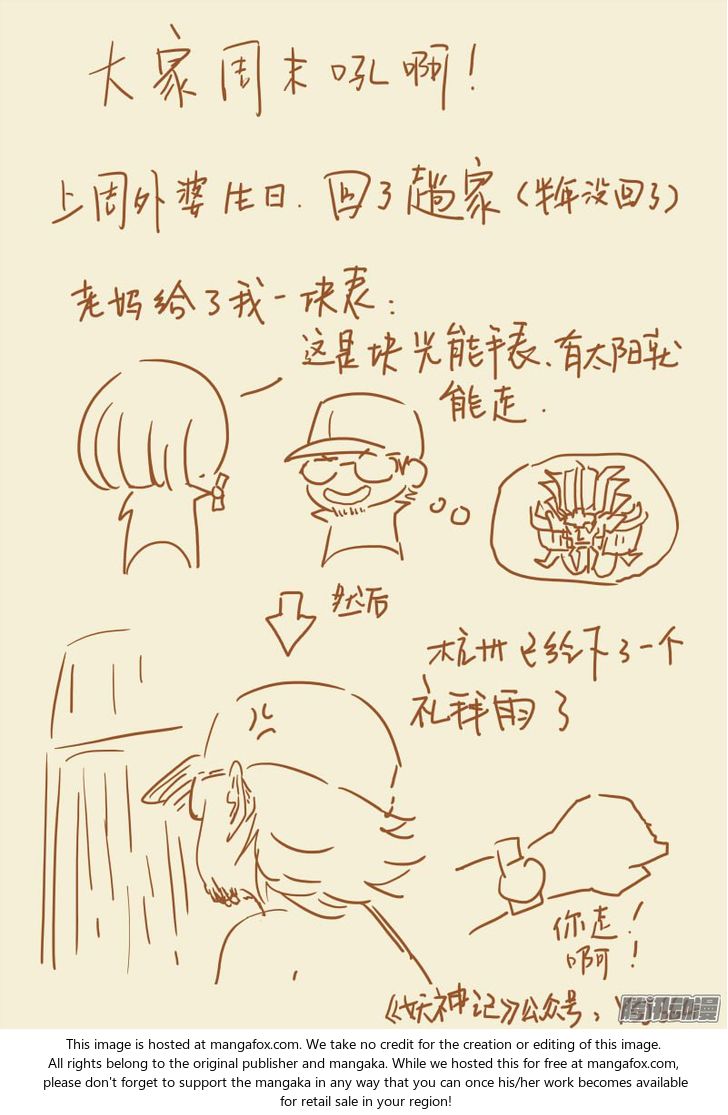 大家周末吼啊!
上周外婆生日.回了趟家(半年没回了)
老妈给了我一块表:
这是块光能手表、有太阳就
能走.
然后
杭州已经下了一个
礼拜雨了
你走!
啊!
《妖神记》公众号:
腾讯动漫
This image is hosted at mangafox.com. We take no credit for the creation or editing of this image.
All rights belong to the original publisher and mangaka. While we hosted this for free at mangafox.com,
please don't forget to support the mangaka in any way that you can once his/her work becomes available
for retail sale in your region!